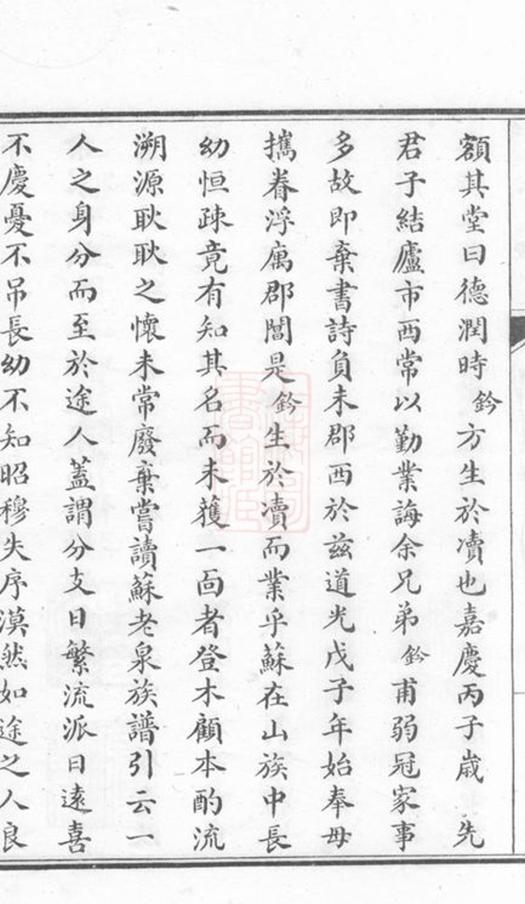 額其堂曰德潤時鈐方生於凟也嘉慶丙子歲先
君子結廬市西常以勤業誨余兄弟鈐甫弱冠家事
多故即棄書詩負耒郡西於茲道光戊子年始奉母
攜眷浮寓郡闉是鈐生於凟而業乎蘇在山族中長
幼恒疎竟有知其名而未獲一面者登木顧本酌流
溯源耿耿之懷未常廢棄嘗讀蘇老泉族譜引云一
人之身分而至於途人蓋謂分支日繁流派日遠喜
不慶憂不吊長幼不知昭穆失序漠然如途之人良